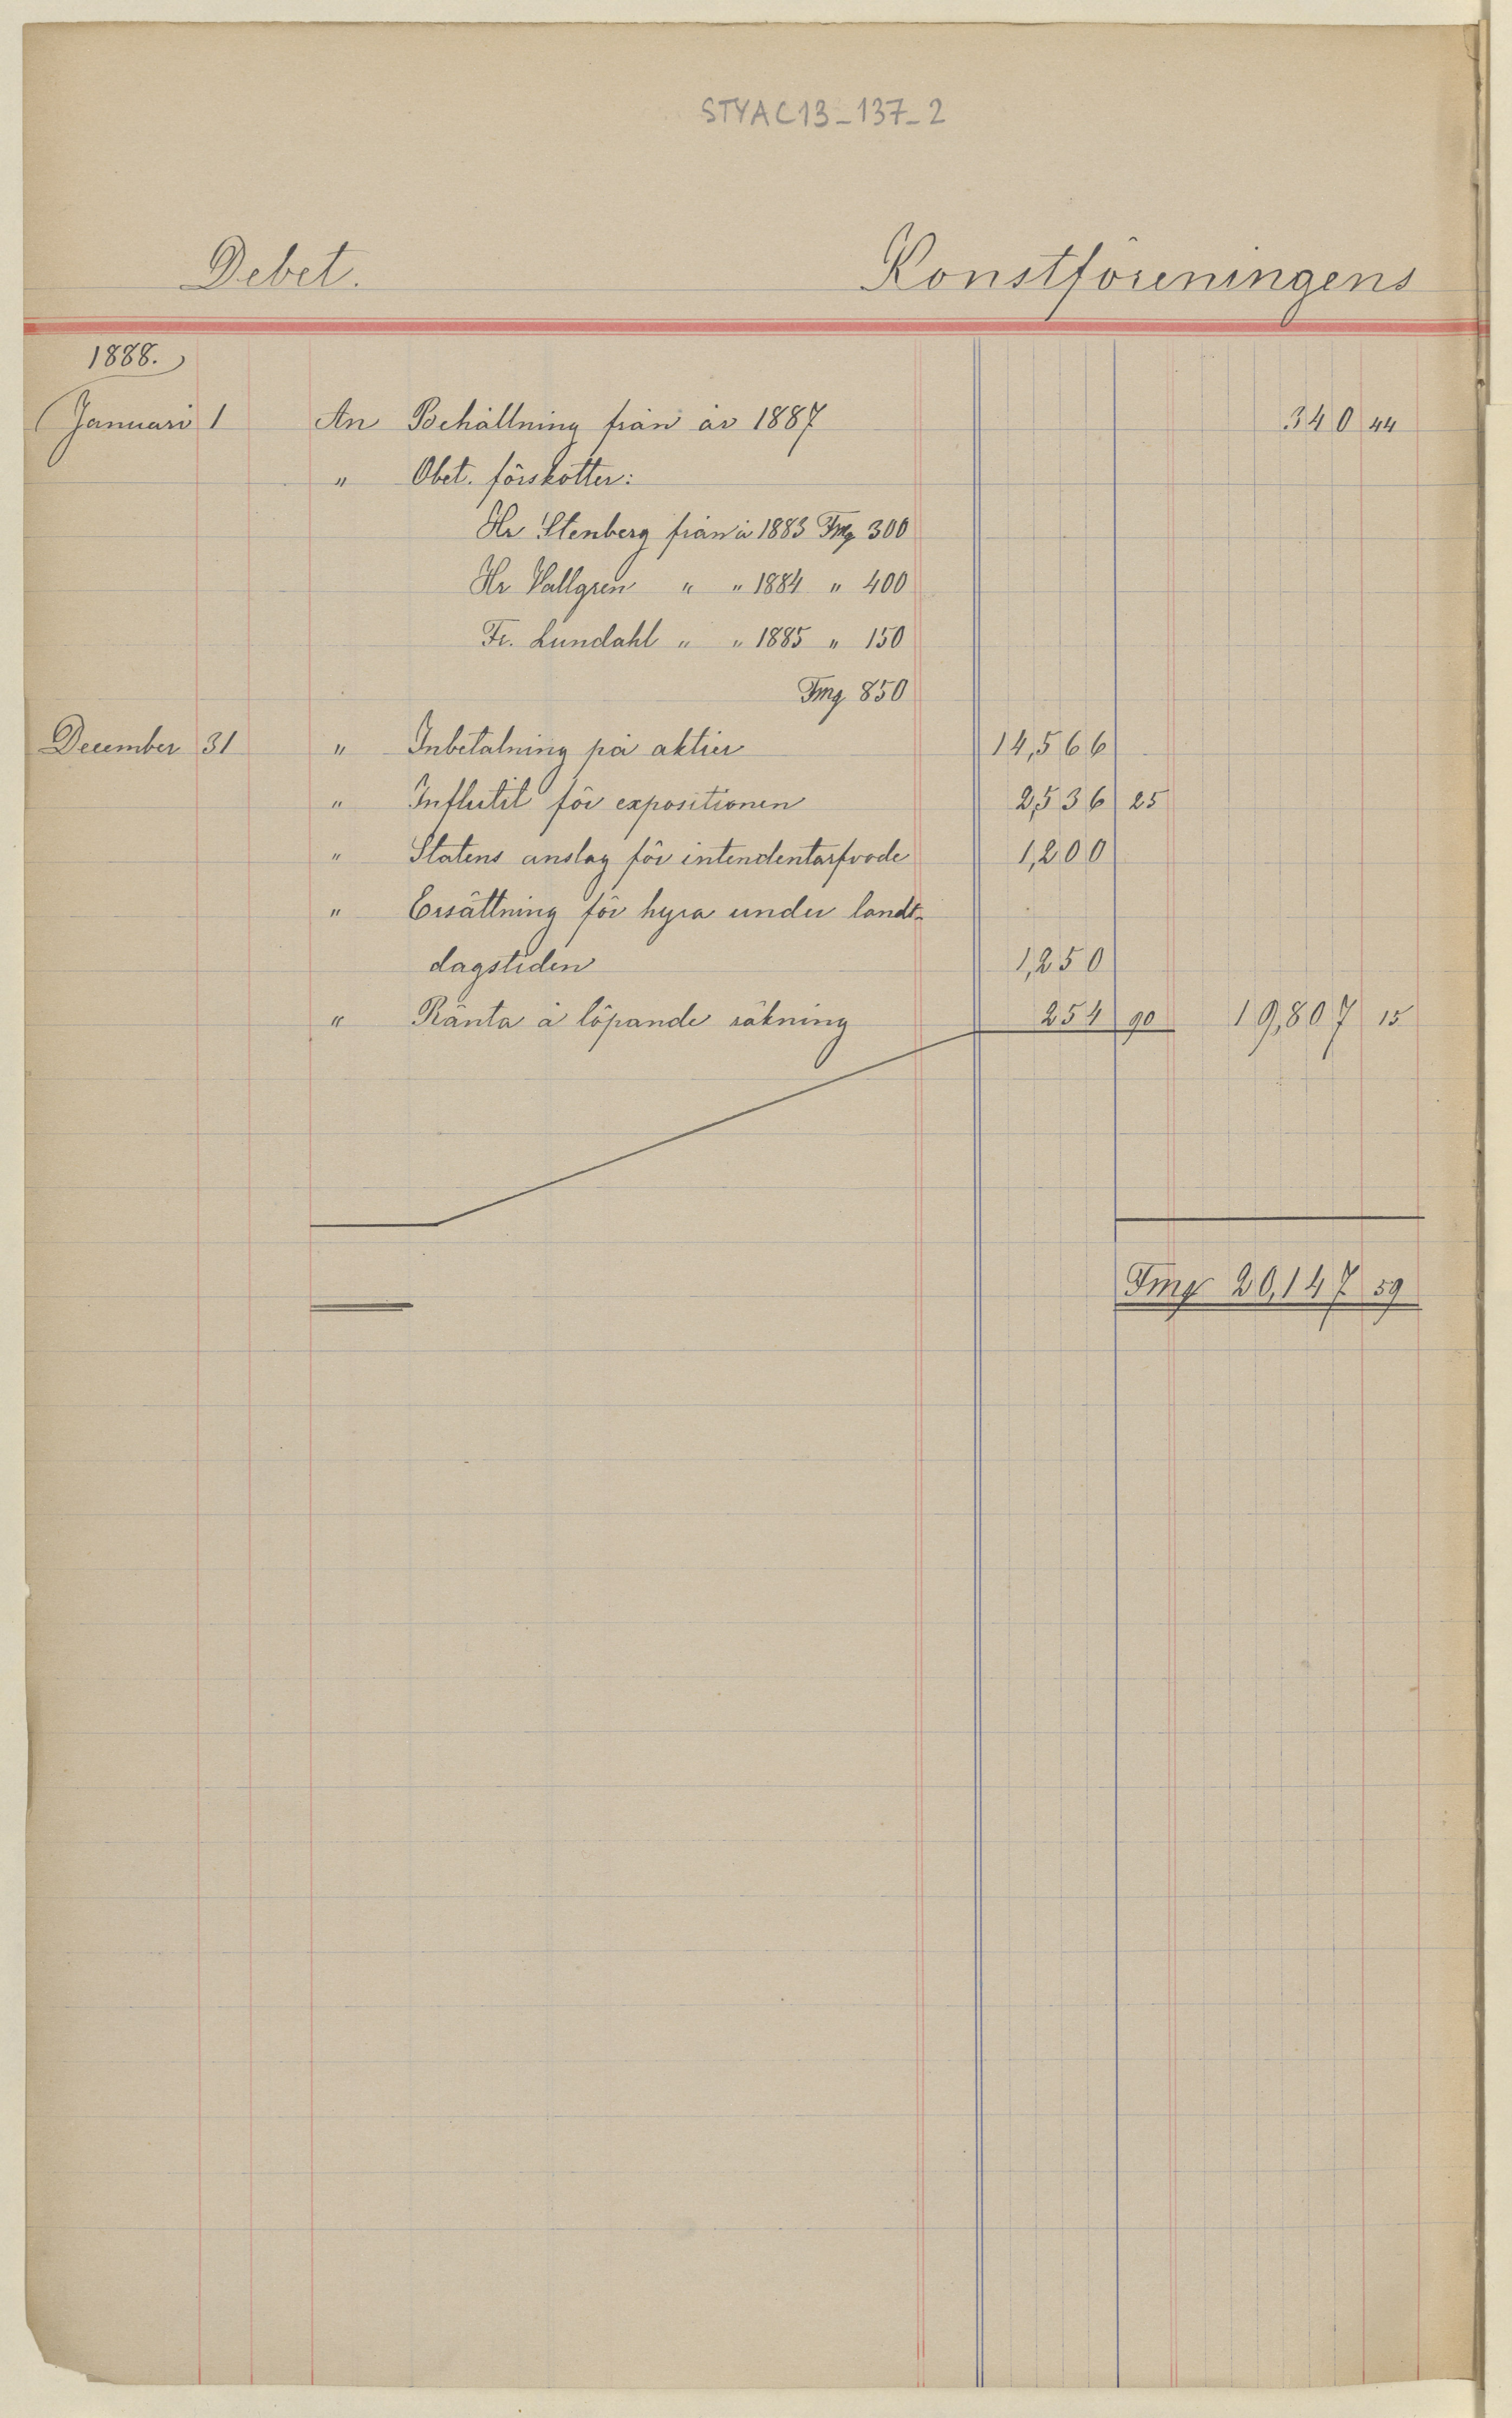 STYAC13_137_2
Debet. Konstföreningens
1888.
Januari 1 An Behållning från år 1887 340 44
" Obet. förskotter:
Hr Stenberg från år 1883 Fmg 300
Hr Vallgren " " 1884 " 400
Fr. Lundahl " " 1885 " 150
Fmg 850
December 31 " Inbetalning på aktier 14,566
" Influtit för expositionen 2,536 25
" Statens anslag för intendentarfvode 1,200
" Ersättning för hyra under landt-
dagstiden 1,250
" Ränta å löpande räkning 254 90 19,807 15
Fmg 20,147 59